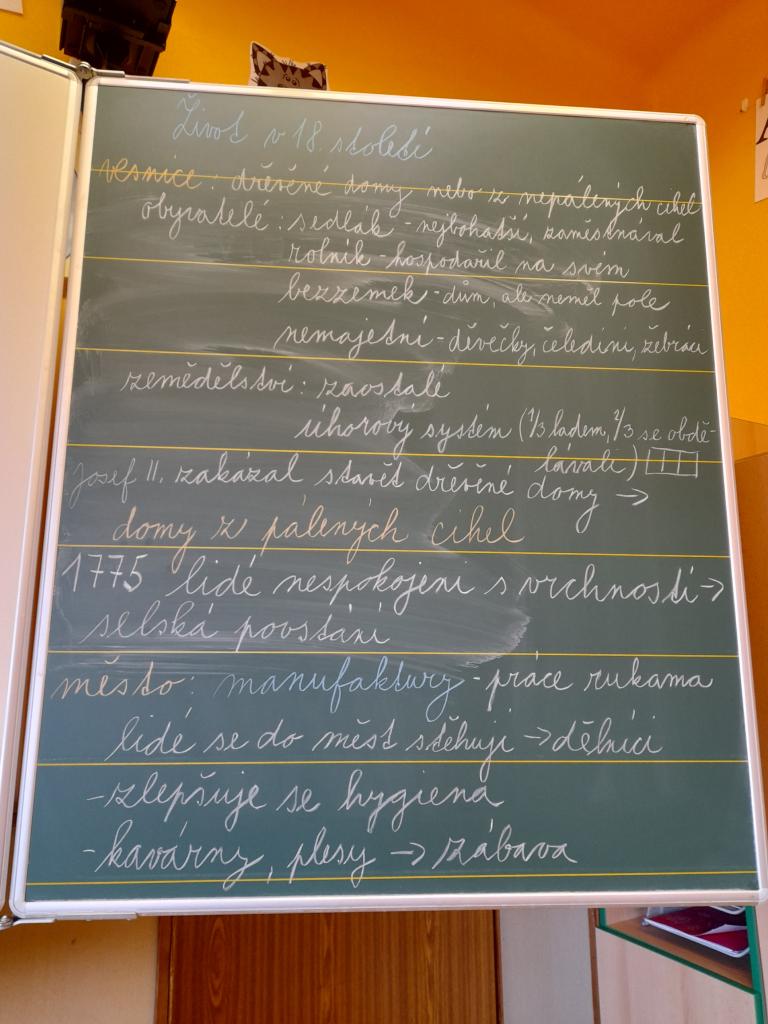 Život v 18. století
vesnice: dřevěné domy nebo z nepálených cihel
obyvatelé: sedlák - nejbohatší, zaměstnával
rolník - hospodařil na svém
bezzemek - dům, ale neměl pole
nemajetní - děvečky, čeledíni, žebráci
zemědělství: zaostalé
úhorový systém (1/3 ladem, 2/3 se obdě-
lávali)
Josef II. zakázal stavět dřevěné domy →
domy z pálených cihel
1775 lidé nespokojeni s vrchností →
selská povstání
město: manufaktury - práce rukama
lidé se do měst stěhují → dělníci
- zlepšuje se hygiena
- kavárny, plesy → zábava